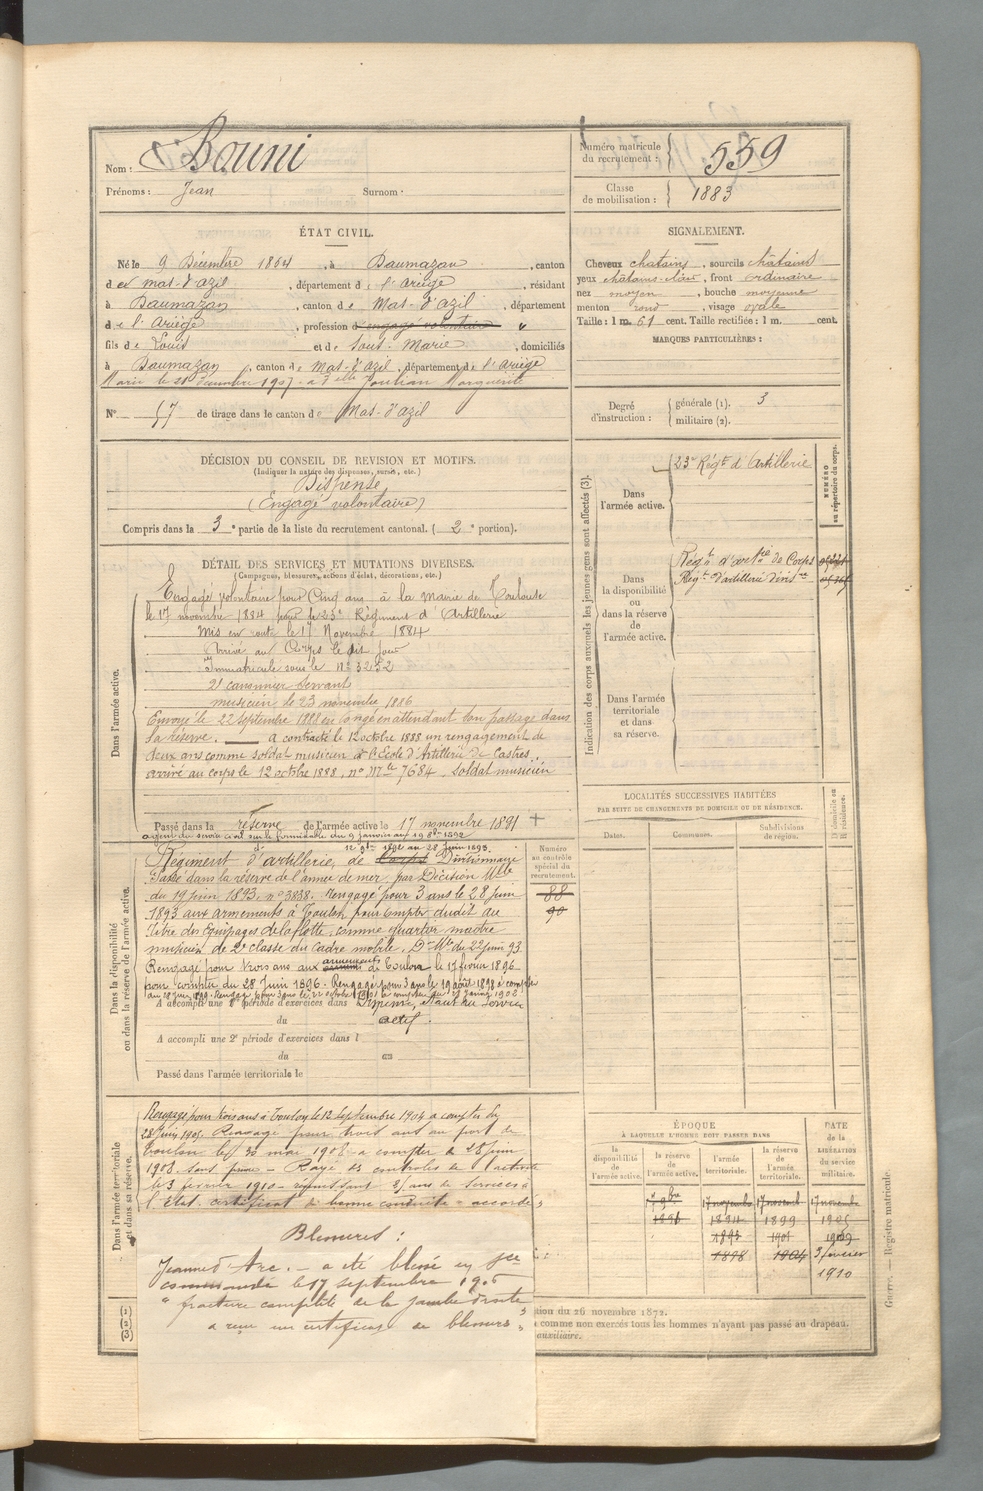 Nom : Bouni
Prénoms : Jean Surnom :
Numéro matricule du recrutement : 559
Classe de mobilisation : 1883
ÉTAT CIVIL.
Né le 9 Décembre 1864, à Daumazan, canton
de mas-d'azil, département de l'ariège, résidant
à Daumazan, canton de Mas-d'azil, département
de l'ariège, profession d'engagé volontaire
fils de Louis et de Sous-Marie, domiciliés
à Daumazan, canton de Mas-d'azil, département de l'ariège
Marié le 21 décembre 1907 à Marguerite
N° 57 de tirage dans le canton de Mas-d'azil
SIGNALEMENT.
Cheveux chatains, sourcils châtains
yeux châtains-clair, front ordinaire
nez moyen, bouche moyenne
menton rond, visage ovale
Taille : 1 m. 61 cent. Taille rectifiée : 1 m. cent.
MARQUES PARTICULIÈRES :
Degré d'instruction : générale (1). 3
militaire (2).
DÉCISION DU CONSEIL DE REVISION ET MOTIFS.
(Indiquer la nature des dispenses, sursis, etc.)
Dispensé
(Engagé volontaire)
Compris dans la 3e partie de la liste du recrutement cantonal. (2e portion).
DÉTAIL DES SERVICES ET MUTATIONS DIVERSES.
(Campagnes, blessures, actions d'éclat, décorations, etc.)
Dans l'armée active.
Engagé volontaire pour Cinq ans à la Mairie de Toulouse
le 17 novembre 1884 pour le 23e Régiment d'Artillerie
Mis en route le 17 Novembre 1884
Arrivé au Corps le dit jour
Immatriculé sous le N° 3252
2e canonnier servant
musicien le 23 novembre 1886
Envoyé le 22 septembre 1888 en congé en attendant son passage dans
la réserve. — a contracté le 12 octobre 1888 un rengagement de
deux ans comme soldat musicien à l'Ecole d'Artillerie de Castres
arrivé au corps le 12 octobre 1888, n° Mle 7684. Soldat musicien
Passé dans la réserve de l'armée active le 17 novembre 1891
Dans la disponibilité ou dans la réserve de l'armée active.
12 9bre 1892 au 28 juin 1893.
Régiment d'artillerie, de Corps Divisionnaire
Passé dans la réserve de l'armée de mer par Décision Mlle
du 19 juin 1893, n° 3838. Rengagé pour 3 ans le 28 juin
1893 aux armements à Toulon, pour compter dudit au
titre des Equipages de la flotte, comme quartier maitre
musicien de 2e classe du cadre mobile. Don Mle du 22 juin 93
Rengagé pour trois ans aux armements de Toulon le 17 février 1896
pour compter du 28 Juin 1896. Rengagé pour 3 ans le 19 août 1898 à compter
A accompli une 1re période d'exercices dans Dispensé, étant au service
du actif.
A accompli une 2e période d'exercices dans l
du au
Passé dans l'armée territoriale le
Numéro au contrôle spécial du recrutement.
88
90
Dans l'armée territoriale et dans sa réserve.
Rengagé pour trois ans à Toulon le 12 Septembre 1904 à compter du
28 Juin 1905. Rengagé pour trois ans au port de
Toulon le 30 mai 1908 à compter du 28 juin
1908 sans prime — Rayé des contrôles de l'activité
le 3 février 1910 — réunissant 25 ans de services à
l'Etat. certificat de bonne conduite "accordé"
Blessures :
Jeanne d'Arc. — a été blessé en sce
commandé le 17 septembre 1906
" fracture complète de la jambe droite "
a reçu un certificat de blessures
Indication des corps auxquels les jeunes gens sont affectés (3).
NUMÉRO au répertoire du corps.
Dans l'armée active.
23e Régt d'Artillerie
Dans la disponibilité ou dans la réserve de l'armée active.
Régt d'artie de Corps
Régt d'artillerie Divisre
Dans l'armée territoriale et dans sa réserve.
LOCALITÉS SUCCESSIVES HABITÉES
PAR SUITE DE CHANGEMENTS DE DOMICILE OU DE RÉSIDENCE.
Dates. Communes. Subdivisions de région. D. domicile ou R. résidence.
ÉPOQUE
À LAQUELLE L'HOMME DOIT PASSER DANS
DATE de la LIBÉRATION du service militaire.
la disponibilité de l'armée active. la réserve de l'armée active. l'armée territoriale. la réserve de l'armée territoriale.
17 novemb 17 novemb 17 novemb
1891 1894 1899 1905
1895 1901 1909
1898 1904 3 février
1910
(1)
(2)
(3)
tion du 26 novembre 1872.
comme non exercés tous les hommes n'ayant pas passé au drapeau.
auxiliaire.
Guerre. — Registre matricule.